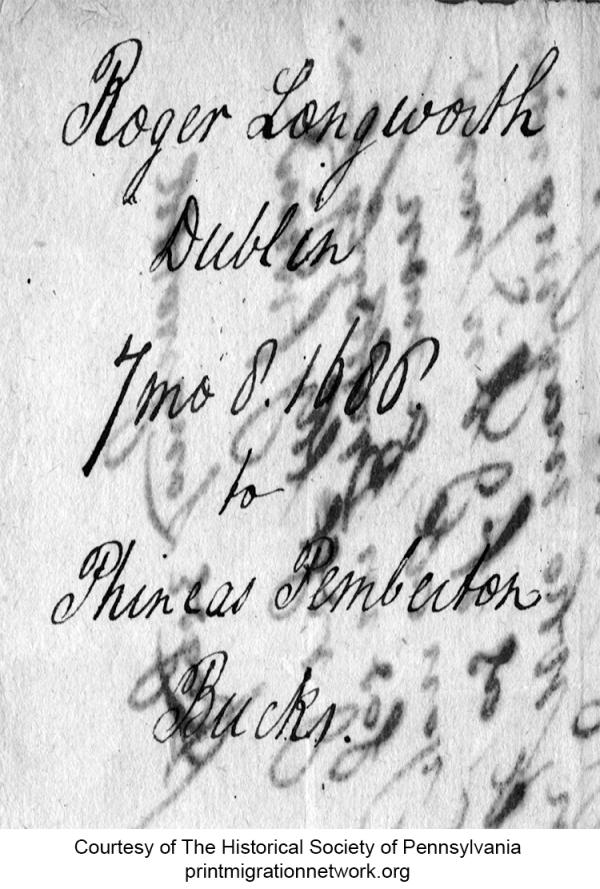 Roger Longworth
Dublin
7mo 8. 1688.
to
Phineas Pemberton
Bucks.
Courtesy of The Historical Society of Pennsylvania
printmigrationnetwork.org